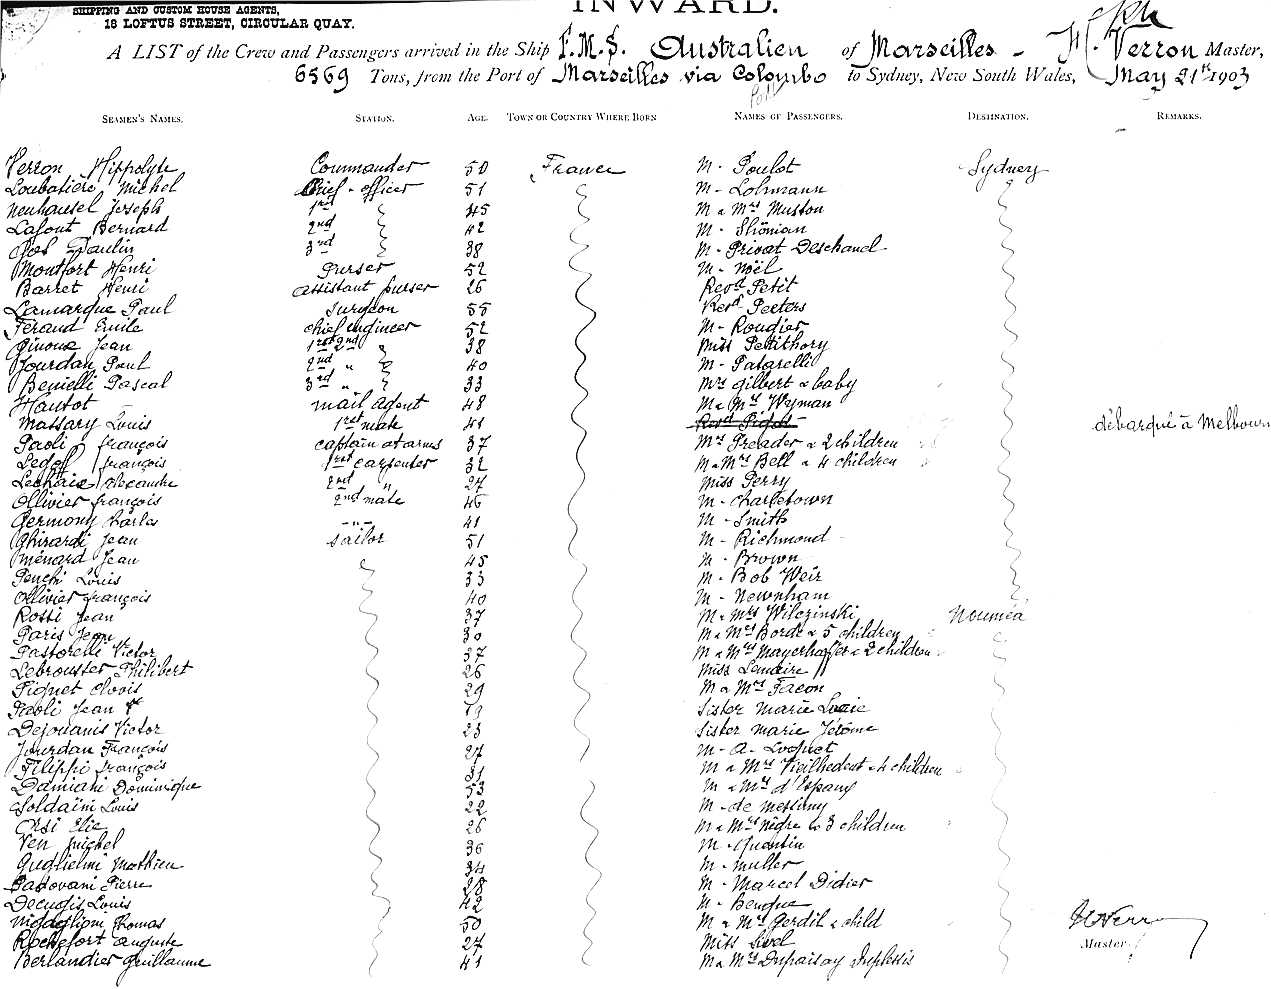 SHIPPING AND CUSTOM HOUSE AGENTS,
18 LOFTUS STREET, CIRCULAR QUAY.
INWARD.
A LIST of the Crew and Passengers arrived in the Ship F.M.S. Australien of Marseilles - H. Verron Master,
6569 Tons, from the Port of Marseilles via Colombo to Sydney, New South Wales, May 21st 1903
SEAMEN'S NAMES. STATION. AGE. TOWN OR COUNTRY WHERE BORN NAMES OF PASSENGERS. DESTINATION. REMARKS.
Verron Hippolyte Commander 50 France M - Poulot Sydney
Loubatière Michel Chief - officer 51 M - Lohmann
Neuhausel Joseph 1rst 45 M & Mrs Muston
Lafont Bernard 2nd 42 M - Shömian
Paulin 3nd 38 M - Privat Deschanel
Montfort Henri purser 52 M - Noël
Barret Henri assistant purser 26 Revd Petit
Lamarque Paul surgeon 55 Revd Peeters
Feraud Emile chief engineer 52 M - Rougier
Ginoux Jean 1rst 2nd 38 Miss Petithory
Jourdan Paul 2nd " 40 M - Patarelli
Benielli Pascal 3nd " 33 Mrs Gilbert & baby
Hautot mail agent 48 M & Mrs Wyman
Massary Louis 1rst mate 41 Revd Pigot débarqué à Melbourn
Paoli françois captain at arms 37 Mrs Preader & 2 children
Ledoff françois 1rst carpenter 32 M & Mrs Bell & 4 children
Lechaix Alexandre 2nd " 27 Miss Perry
Ollivier françois 2nd mate 46 M - Charletown
Germony Charles -"- 41 M - Smith
Ghirardi Jean sailor 51 M - Richmond
Ménard Jean 45 M - Brown
Penchi Louis 33 M - Bob Weir
Ollivier françois 40 M - Newnham
Rossi Jean 37 M & Mrs Wilczinski Nouméa
Paris Jean 30 M & Mrs Borde & 5 children
Pastorelli Victor 37 M & Mrs Mayerhoffer & 2 children
Lebrouster Philibert 26 Miss Lemaire
Piquet Clovis 29 M & Mrs Facon
Paoli Jean Sister Marie Lucie
Dejouanis Victor 23 Sister Marie Jérôme
Jourdan François 27 M - A - Loquet
Filippi françois 31 M & Mrs Vieilhedent & 4 children
Damiani Dominique 53 M & Mrs d'Espany
Soldaïni Louis 22 M - de Messimy
Orsi Elie 26 M & Mrs Nègre & 3 children
Ven Michel 36 M - Quantin
Guglielmi Mathieu 34 M - Muller
Padovani Pierre 28 M - Marcel Didier
Decugis Louis 42 M - Bengue
Nigaglioni Thomas 50 M & Mrs Gerdil & child
Rochefort Auguste 27 Miss
Berlandier Guillaume 41 M & Mrs Dupaisay Duplessis
H Verron
Master.